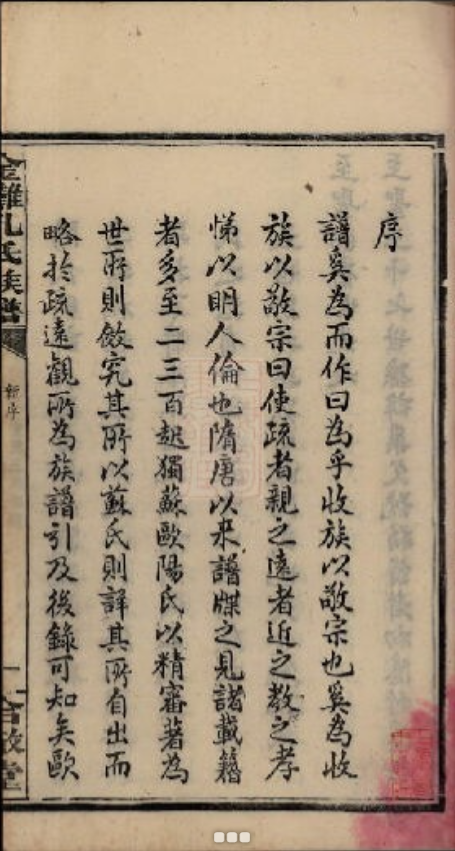 序
譜奚為而作曰為乎收族以敬宗也奚為收
族以敬宗曰使疏者親之遠者近之教之孝
悌以明人倫也隋唐以来譜牒之見諸載籍
者多至二三百起獨蘇歐陽氏以精審著為
世所則倣究其所以蘇氏則詳其所自出而
略於疏遠觀所為族譜引及後錄可知矣歐
金灘孔氏族譜
新序
一
合敬堂